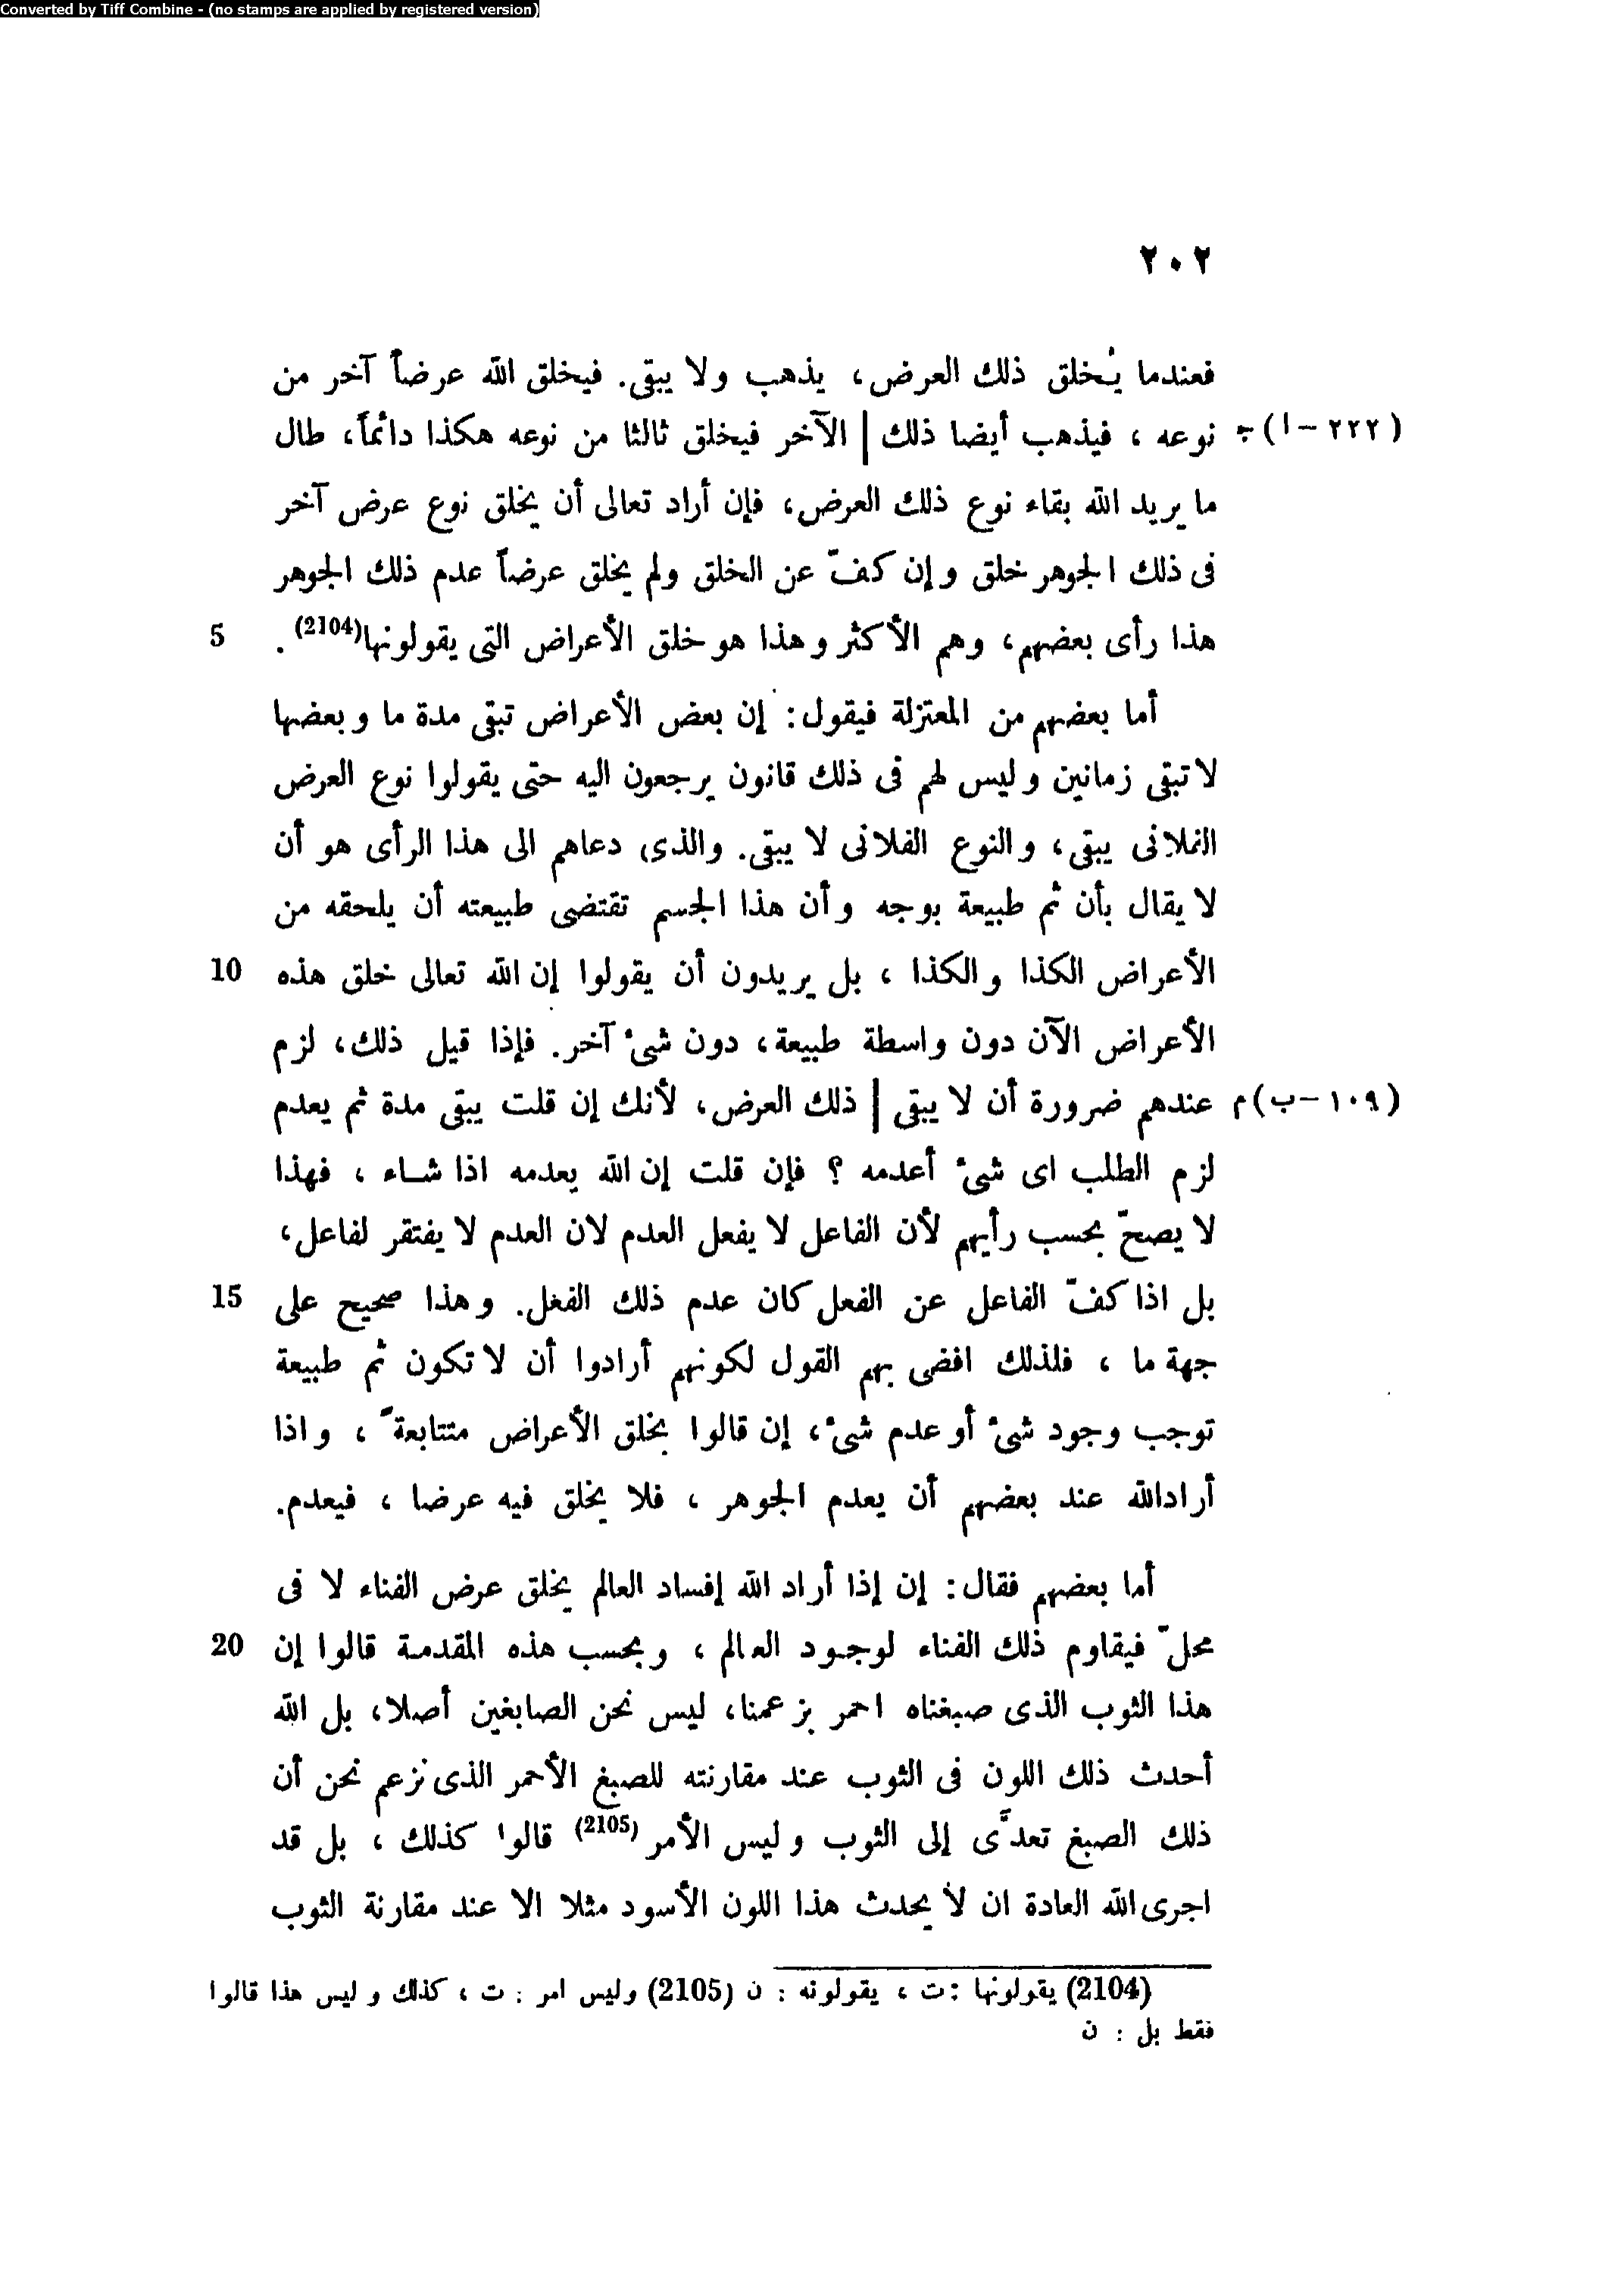 Converted by Tiff Combine - (no stamps are applied by registered version)
٢٠٢
فعندما يُخلق ذلك العرض، يذهب ولا يبقى. فيخلق الله عرضاً آخر من
(٢٢٢-ا)ج نوعه ، فيذهب أيضا ذلك | الآخر فيخلق ثالثا من نوعه هكذا دائماً، طال
ما يريد الله بقاء نوع ذلك العرض، فإن أراد تعالى أن يخلق نوع عرض آخر
فى ذلك الجوهر خلق وإن كفّ عن الخلق ولم يخلق عرضاً عدم ذلك الجوهر
هذا رأى بعضهم، وهم الأكثر وهذا هو خلق الأعراض التى يقولونها(2104) . 5
أما بعضهم من المعتزلة فيقول: إن بعض الأعراض تبقى مدة ما وبعضها
لا تبقى زمانين وليس لهم فى ذلك قانون يرجعون اليه حتى يقولوا نوع العرض
الفلانى يبقى، والنوع الفلانى لا يبقى. والذى دعاهم الى هذا الرأى هو أن
لا يقال بأن ثم طبيعة بوجه وأن هذا الجسم تقتضى طبيعته أن يلحقه من
الأعراض الكذا والكذا ، بل يريدون أن يقولوا إن الله تعالى خلق هذه 10
الأعراض الآن دون واسطة طبيعة، دون شئ آخر. فإذا قيل ذلك، لزم
(١٠٩-ب)م عندهم ضرورة أن لا يبقى | ذلك العرض، لأنك إن قلت يبقى مدة ثم يعدم
لزم الطلب اى شئ أعدمه ؟ فإن قلت إن الله يعدمه اذا شاء ، فهذا
لا يصحّ بحسب رأيهم لأن الفاعل لا يفعل العدم لان العدم لا يفتقر لفاعل،
بل اذا كفّ الفاعل عن الفعل كان عدم ذلك الفغل. وهذا صحيح على 15
جهة ما ، فلذلك افضى بهم القول لكونهم أرادوا أن لا تكون ثم طبيعة
توجب وجود شئ أو عدم شئ، إن قالوا بخلق الأعراض متتابعةً ، واذا
أرادالله عند بعضهم أن يعدم الجوهر ، فلا يخلق فيه عرضا ، فيعدم.
أما بعضهم فقال: إن إذا أراد الله إفساد العالم يخلق عرض الفناء لا فى
محلّ فيقاوم ذلك الفناء لوجود العالم ، وبحسب هذه المقدمة قالوا إن 20
هذا الثوب الذى صبغناه احمر بزعمنا، ليس نحن الصابغين أصلا، بل الله
أحدث ذلك اللون فى الثوب عند مقارنته للصبغ الأحمر الذى نزعم نحن أن
ذلك الصبغ تعدَّى إلى الثوب وليس الأمر (2105) قالوا كذلك ، بل قد
اجرى الله العادة ان لا يحدث هذا اللون الأسود مثلا الا عند مقارنة الثوب
(2104) يقولونها : ت ، يقولونه : ن (2105) وليس امر : ت ، كذلك وليس هذا قالوا
فقط بل : ن